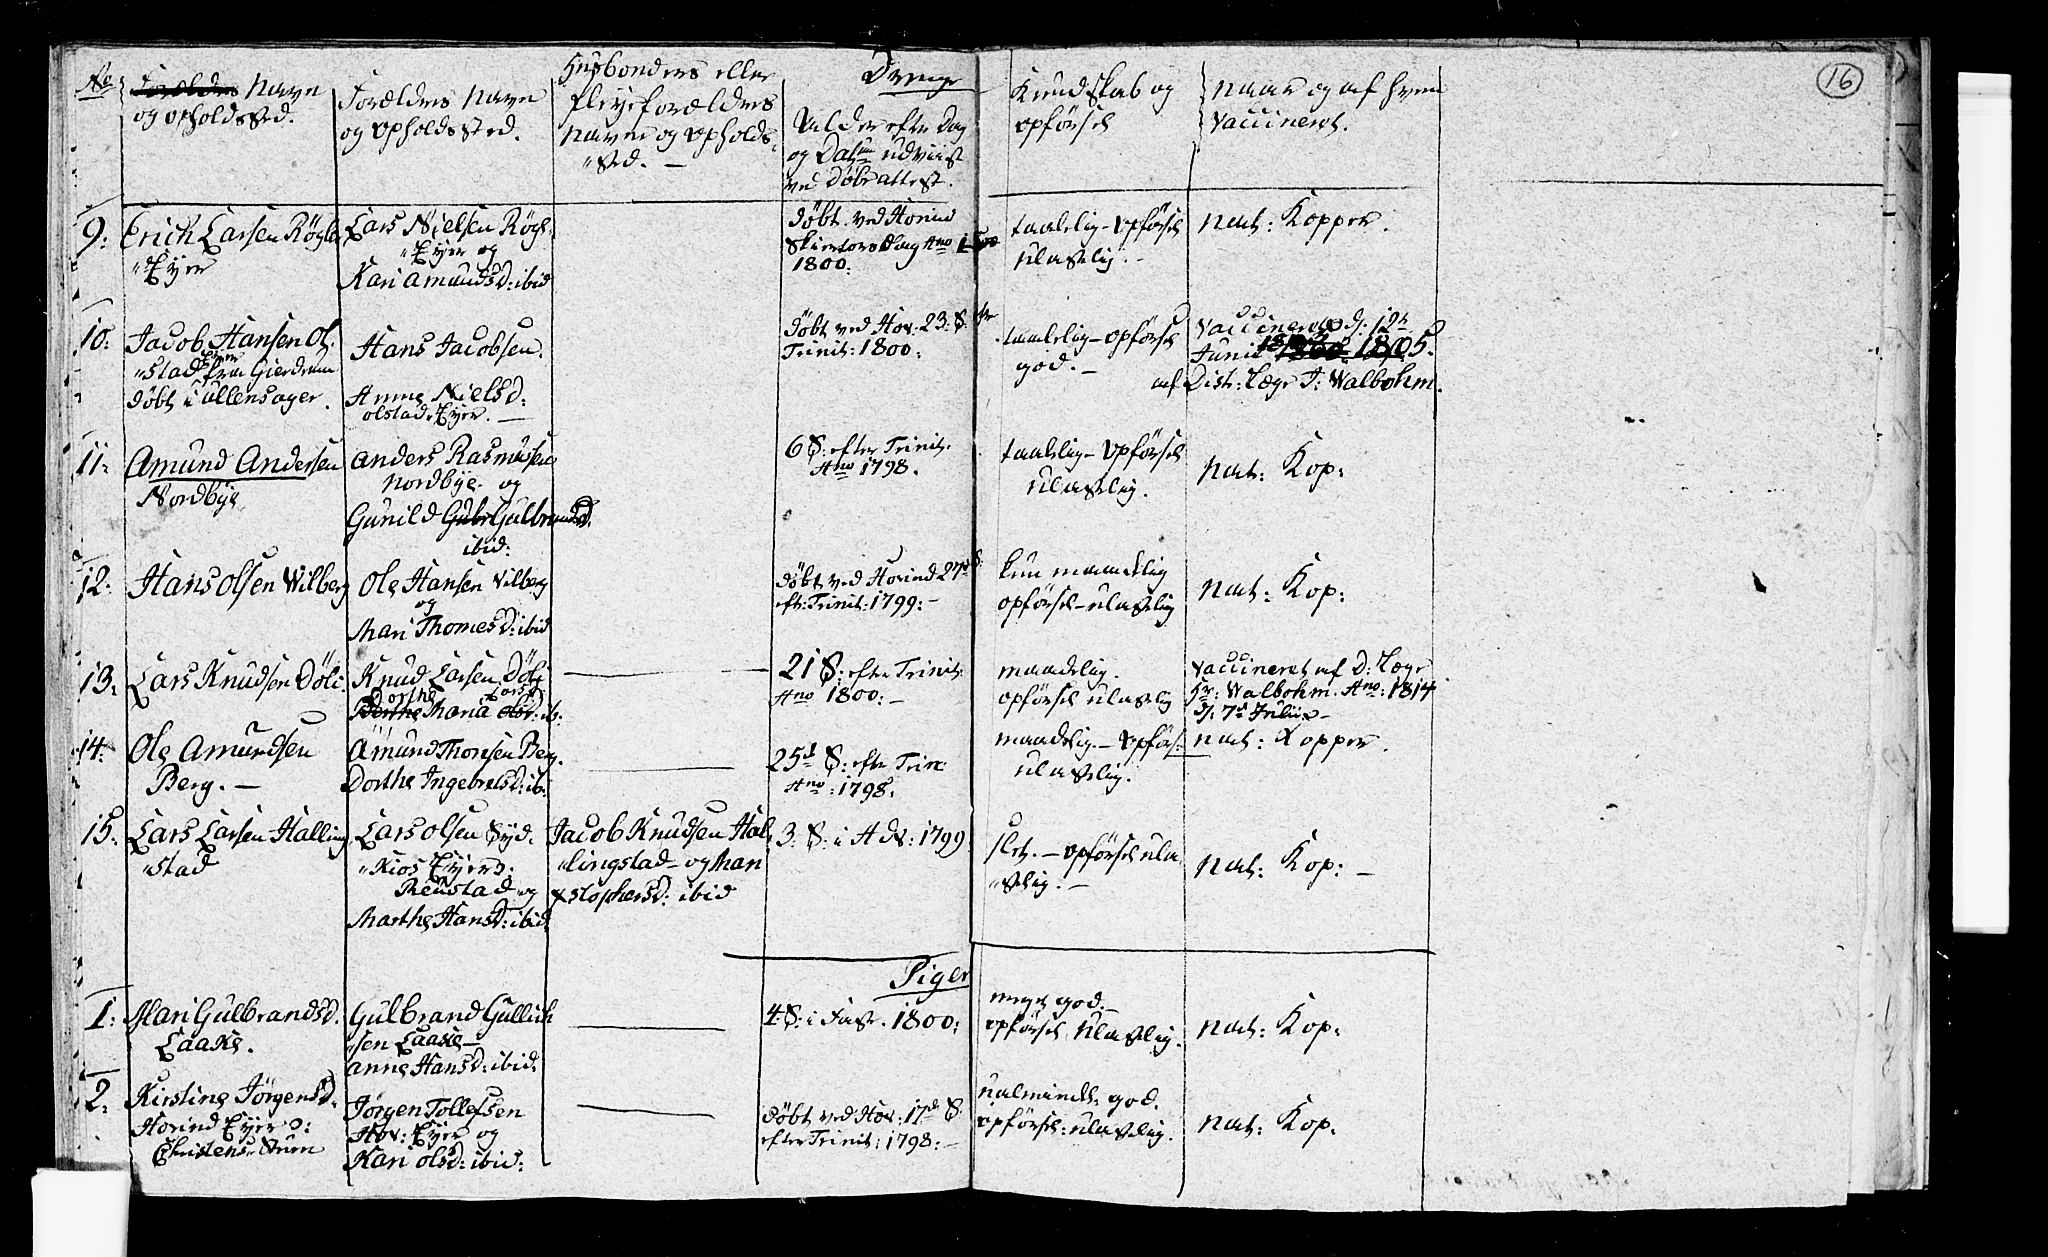 16
No
Forældres Navn
og opholdsSted.
Forældres Navn
og opholdsSted.
Husbonders eller
Pleyeforældres
Navne og opholds-
"sted. —
Drenge
Alder efter Dag
og Datum udviist
ved Døbeattest.
Kundskab og
opførsel
naar og af hvem
vaccineret.
9: Erich Larsen Røgle
"Eyer
Lars Nielsen Røgl.
"Eyer og
Kari Amundsd: ibid
Døbt ved Hovind
Skiertorsdag Ano
1800:
taalelig - opførsel
ulastelig. -
nat: Kopper.
10: Jacob Hansen Ol-
"stad Eyer fra Gierdrum
døbt i Ullensager.
Hans Jacobsen.
Anne Nielsd:
olstad Eyer. —
Døbt ved Hov. 23: S. efter
Trinit: 1800:
taalelig - opførsel
god. -
Vaccineret d: 12te
Junii 1805.
af Distr: Læge J: Walbohm.
11: Amund Andersen
Nordbye
Anders Rasmussen
Nordbye og
Gunild Gulbrandsd.
ibid:
6 S: efter Trinit.
Ano 1798.
taalelig - opførsel
ulastelig.
nat: Kop:
12: Hans Olsen Wilberg
Ole Hansen Vilberg
og
Mari Thomesd: ibid
døbt ved Hovind 27de S:
eft: Trinit: 1799: -
kun maadelig
opførsel - ulastelig
nat: Kop:
13: Lars Knudsen Døli:
Knud Larsen Døli
Dorthe Maria Larsd: ib:
21 S: efter Trinit:
Ano 1800: -
maadelig.
opførsel ulastelig
vaccineret af D: Læge
Hr: Walbohm. Ano: 1814
d: 7de Julii -
14: Ole Amundsen
Berg. -
Amund Thomsen Berg.
Dorthe Ingebretsd: ib:
25d S: efter Trin:
Ano: 1798:
maadelig. - opførs:
ulastelig.
nat: Kopper.
15: Lars Larsen Halling
"stad
Lars Olsen Syd-
"Kios Eyer D:
Reustad og
Marthe Hansd: ibid
Jacob Knudsen Hal-
"lingstad - og Mari
Xstophersd: ibid
3: S: i Adv: 1799
slet. - opførsel ula-
"stelig. -
nat: Kop: -
Piger
1: Mari Gulbrandsd.
Laake.
Gulbrand Gullich
"sen Laake -
Anne Hansd: ibid:
4 S: i Fast. 1800:
meget god. -
opførsel ulastelig.
nat: Kop:
2: Kirstine Jørgensd.
Hovind Eyer
Christens
Jørgen Tollefsen
Hov: Eyer og
Kari Olsd: ibid:
Døbt ved Hov: 17de S.
efter Trinit: 1798: -
ualmindel: god.
opførsel: ulastelig.
nat: Kop: